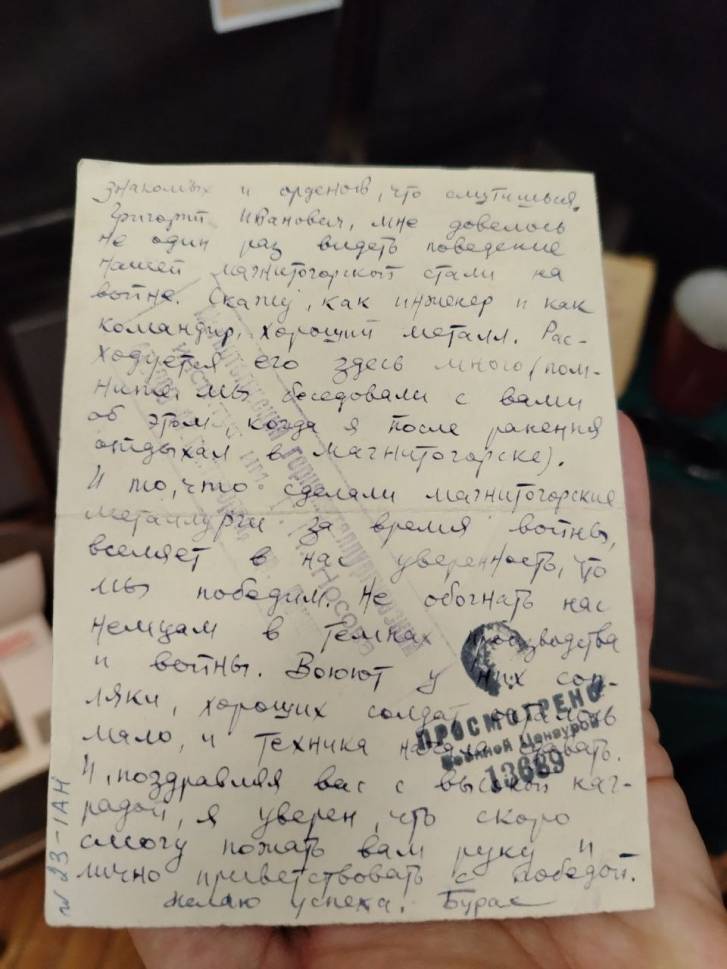 знакомых и орденов, что смутишься.
Григорий Иванович, мне довелось
не один раз видеть поведение
нашей магнитогорской стали на
войне. Скажу, как инженер и как
командир, хороший металл. Рас-
ходуется его здесь много (пом-
ните, мы беседовали с вами
об этом, когда я после ранения
отдыхал в Магнитогорске).
И то, что сделали магнитогорские
металлурги за время войны,
вселяет в нас уверенность, что
мы победим. Не обогнать нас
немцам в темпах производства
и войны. Воюют у них соп-
ляки, хороших солдат осталось
мало, и техника начала сдавать.
И, поздравляя вас с высокой наг-
радой, я уверен, что скоро
смогу пожать вам руку и
лично приветствовать с победой.
Желаю успеха. Бурак
ПРОСМОТРЕНО
Военной Цензурой
13689
Магнитогорский горно-металлургический
институт им. Г. И. Носова
№ 23-1АН